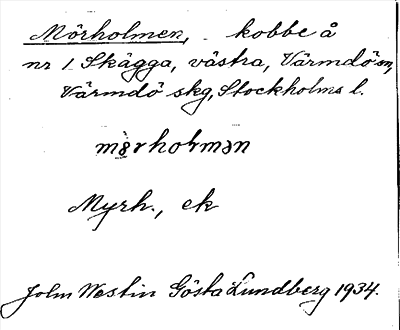 Mörholmen, kobbe å
nr 1 Skägga, västra, Värmdö sn,
Värmdö skg, Stockholms l.
mörholmən
Myrh., ek
John Westin Gösta Lundberg 1934.